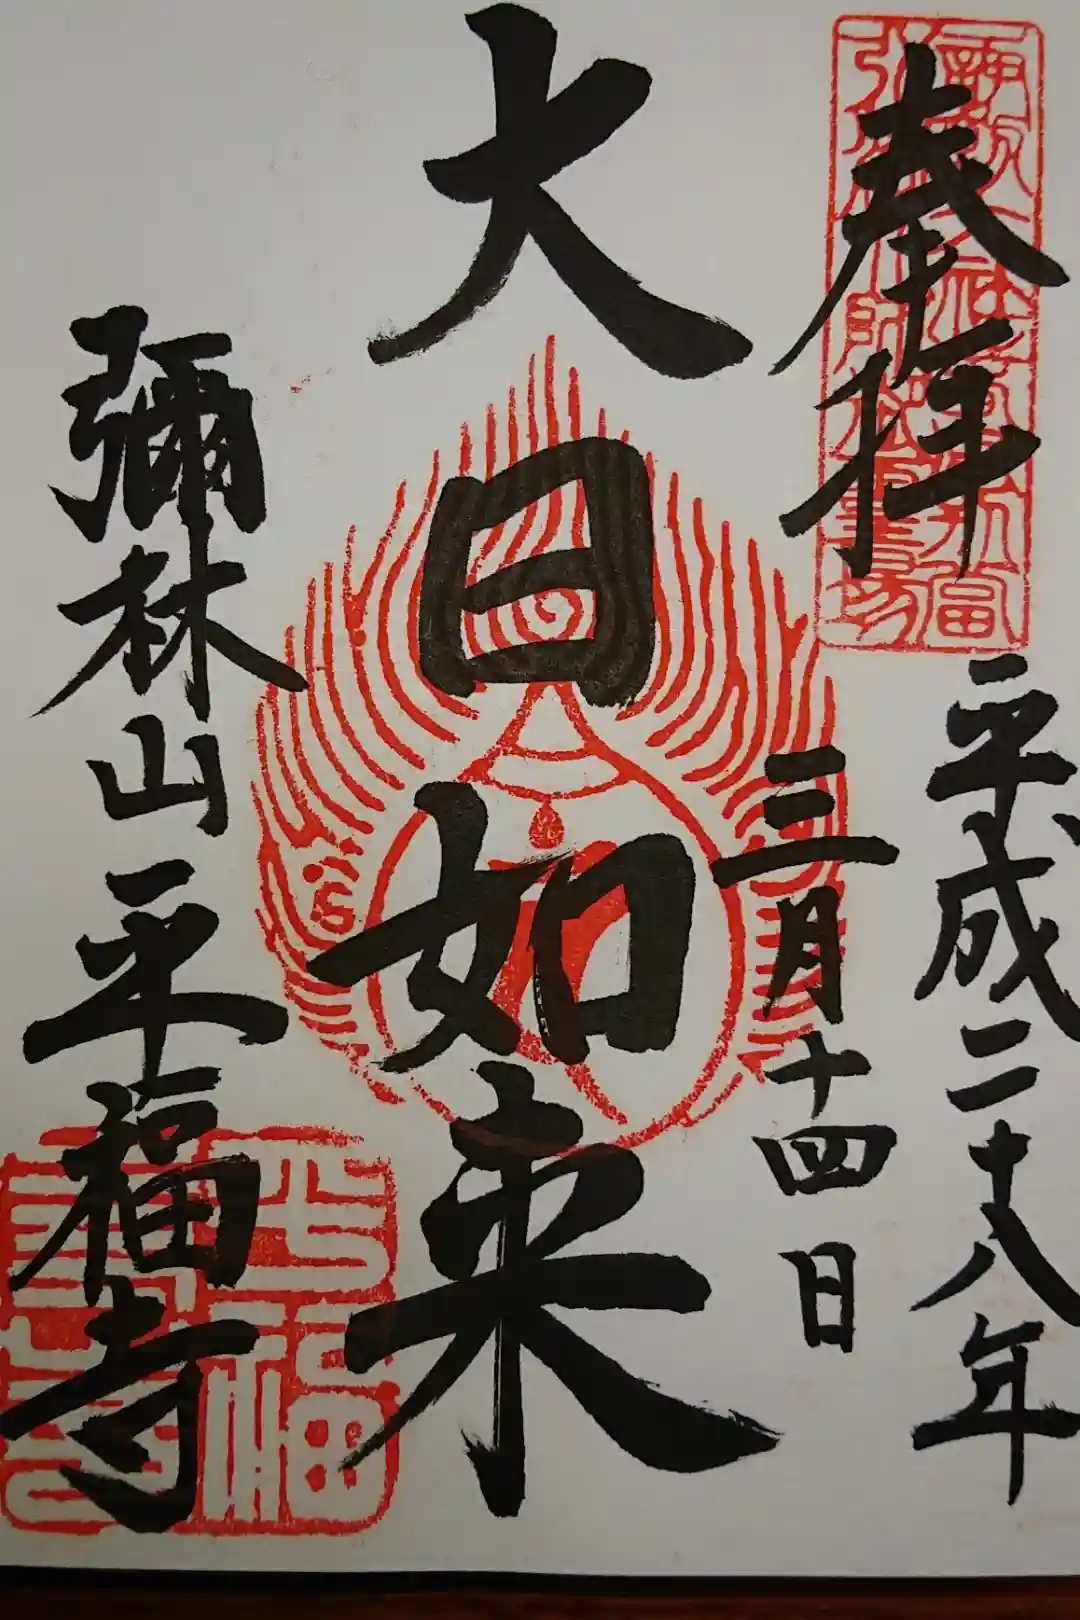 奉拝
平成二十八年
三月十四日
大日如来
彌林山平福寺